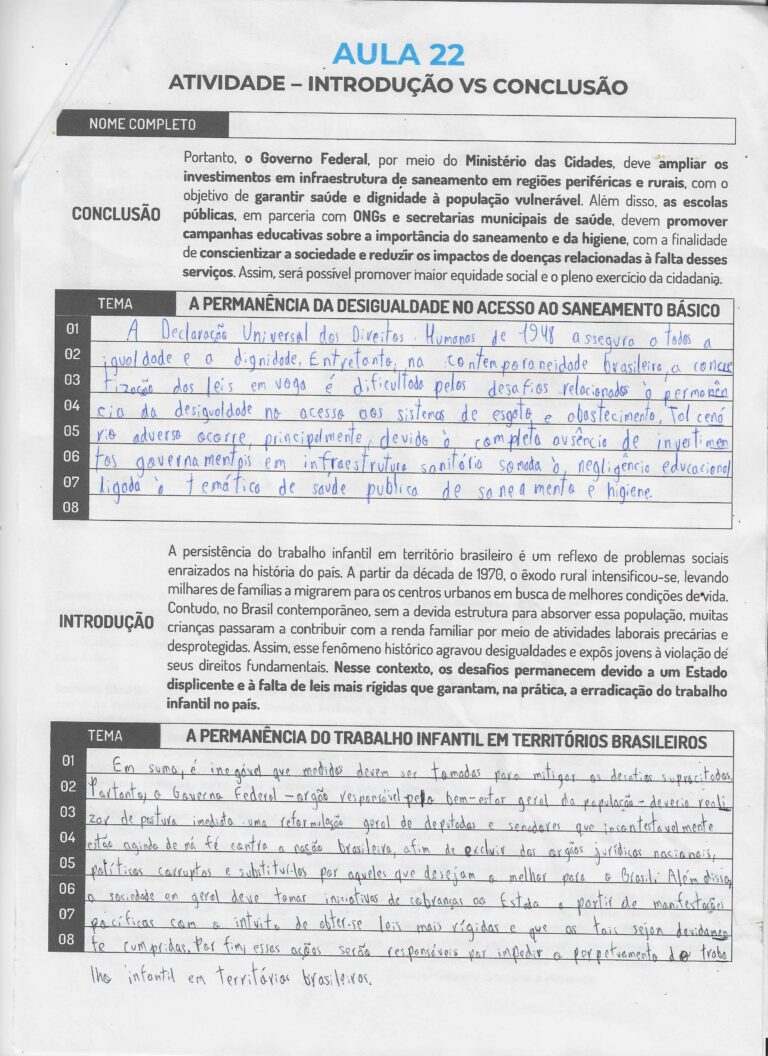 AULA 22
ATIVIDADE – INTRODUÇÃO VS CONCLUSÃO
NOME COMPLETO
CONCLUSÃO
Portanto, o Governo Federal, por meio do Ministério das Cidades, deve ampliar os
investimentos em infraestrutura de saneamento em regiões periféricas e rurais, com o
objetivo de garantir saúde e dignidade à população vulnerável. Além disso, as escolas
públicas, em parceria com ONGs e secretarias municipais de saúde, devem promover
campanhas educativas sobre a importância do saneamento e da higiene, com a finalidade
de conscientizar a sociedade e reduzir os impactos de doenças relacionadas à falta desses
serviços. Assim, será possível promover maior equidade social e o pleno exercício da cidadania.
TEMA A PERMANÊNCIA DA DESIGUALDADE NO ACESSO AO SANEAMENTO BÁSICO
01 A Declaração Universal dos Direitos Humanos de 1948 assegura a todos a
02 igualdade e a dignidade. Entretanto, na contemporaneidade brasileira, a concre
03 tização das leis em voga é dificultada pelos desafios relacionados à permanên
04 cia da desigualdade no acesso aos sistemas de esgoto e abastecimento. Tal cená
05 rio adverso ocorre, principalmente, devido à completa ausência de investimen
06 tos governamentais em infraestrutura sanitária somada à negligência educacional
07 ligada à temática de saúde publica de saneamento e higiene.
08
INTRODUÇÃO
A persistência do trabalho infantil em território brasileiro é um reflexo de problemas sociais
enraizados na história do país. A partir da década de 1970, o êxodo rural intensificou-se, levando
milhares de famílias a migrarem para os centros urbanos em busca de melhores condições de vida.
Contudo, no Brasil contemporâneo, sem a devida estrutura para absorver essa população, muitas
crianças passaram a contribuir com a renda familiar por meio de atividades laborais precárias e
desprotegidas. Assim, esse fenômeno histórico agravou desigualdades e expôs jovens à violação de
seus direitos fundamentais. Nesse contexto, os desafios permanecem devido a um Estado
displicente e à falta de leis mais rígidas que garantam, na prática, a erradicação do trabalho
infantil no país.
TEMA A PERMANÊNCIA DO TRABALHO INFANTIL EM TERRITÓRIOS BRASILEIROS
01 Em suma, é inegável que medidas devem ser tomadas para mitigar os desafios supracitados.
02 Portanto, o Governo Federal - orgão responsável pelo bem-estar geral da população - deveria reali
03 zar de postura imediata uma reformulação geral de deputados e senadores que incontestavelmente
04 estão agindo de má fé contra a nação brasileira, afim de excluir dos orgãos jurídicos nacionais,
05 políticos corruptos e substituí-los por aqueles que desejam o melhor para o Brasil. Além disso,
06 a sociedade en geral deve tomar iniciativas de cobranças ao Estado a partir de manifestações
07 pacíficas com o intuito de obter-se leis mais rígidas e que as tais sejam devidamen
08 te cumpridas. Por fim, essas ações serão responsáveis por impedir o perpetuamento do traba
lho infantil em territórios brasileiros.